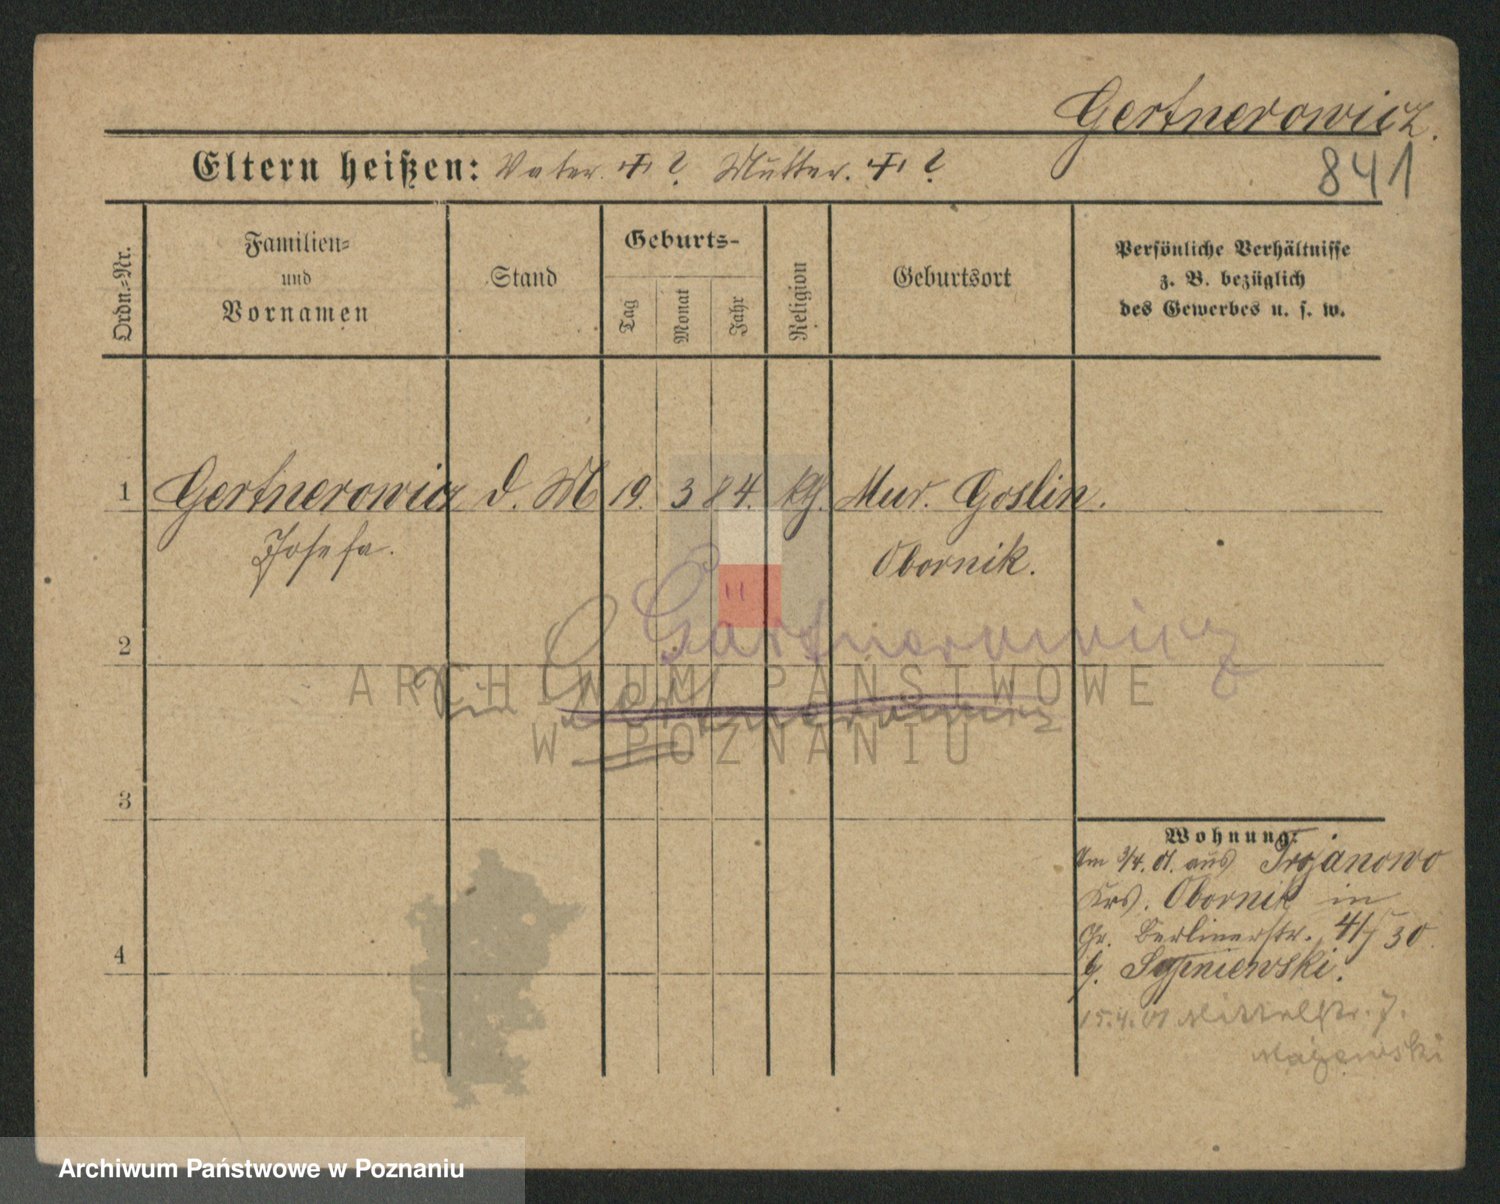 Gertnerowicz.
841
Eltern heißen: Vater. ? Mutter. ?
Ordn.-Nr.
Familien-
und
Vornamen
Stand
Geburts-
Tag
Monat
Jahr
Religion
Geburtsort
Persönliche Verhältnisse
z. B. bezüglich
des Gewerbes u. s. w.
1 Gertnerowicz d. M 19. 3 84. kg. Mur. Goslin.
Josefa. Obornik.
Gartnerowicz
2
ARCHIWUM PAŃSTWOWE
W POZNANIU
3
Wohnung:
Am 3/4. 01. aus Trojanowo
Krs. Obornik in
Gr. Berlinerstr. 30.
4
b. Sypniewski.
15.4.01 Mittelstr. 7.
Majewski
Archiwum Państwowe w Poznaniu